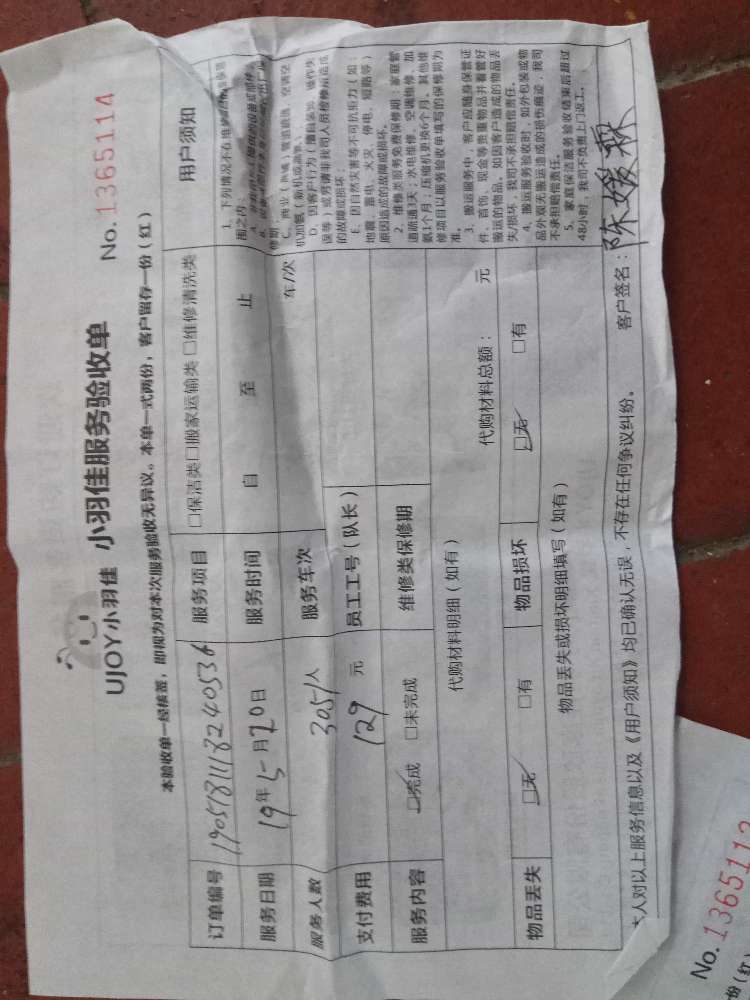 UJOY小羽佳 小羽佳服务验收单
No. 1365114
本验收单一经核签，即视为对本次服务验收无异议。本单一式两份，客户留存一份（红）
订单编号 1905181118240536 服务项目 □保洁类□搬家运输类 □维修清洗类
服务日期 19年5月20日 服务时间 自 至 止
服务人数 3051人 服务车次 车/次
支付费用 129 元 员工工号（队长）
服务内容 ☑完成 □未完成 维修类保修期
代购材料明细（如有） 代购材料总额： 元
物品丢失 ☑无 □有 物品损坏 ☑无 □有
物品丢失或损坏明细填写（如有）
用户须知
1、下列情况不在维修
围之内：
修期；
C、商业（
机加氨（新机或
D、因客户行为（擅自装卸、操作失
误等）或另请非我司人员检修而造成
的故障或损坏；
E、因自然灾害等不可抗拒力（如：
地震、雷电、火灾、停电、短路等）
原因造成的故障或损坏。
2、维修类服务免费保修期：家庭管
道疏通3天；水电维修、空调维修、加
氨1个月，压缩机更换6个月。其他维
修项目以服务验收单填写的保修期为
准。
3、搬运服务中，客户应随身保管证
件、首饰、现金等贵重物品并看管好
搬运的物品。如因客户造成的物品丢
失/损坏，我司不承担赔偿责任。
4、搬运服务验收时，如外包装或物
品外观无搬运造成的损伤痕迹，我司
不承担赔偿责任。
5、家庭保洁服务验收结束后超过
48小时，我司不负责上门返工。
本人对以上服务信息以及《用户须知》均已确认无误，不存在任何争议纠纷。 客户签名：陈媛霖
No. 1365113
份（红）